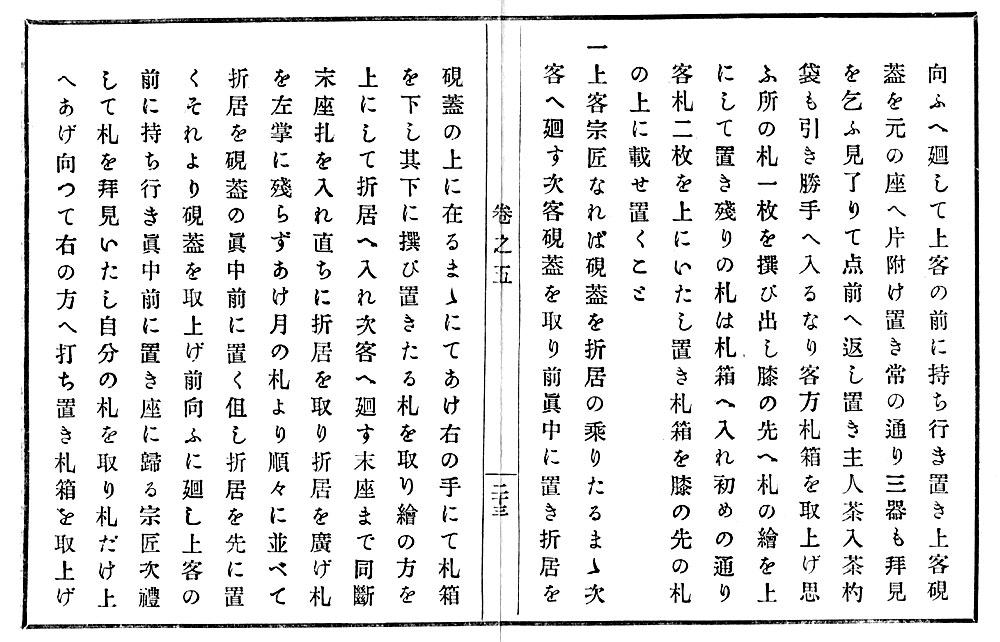 向ふへ廻して上客の前に持ち行き置き上客硯
葢を元の座へ片附け置き常の通り三器も拜見
を乞ふ見了りて点前へ返し置き主人茶入茶杓
袋も引き勝手へ入るなり客方札箱を取上げ思
ふ所の札一枚を撰び出し膝の先へ札の繪を上
にして置き殘りの札は札箱へ入れ初めの通り
客札二枚を上にいたし置き札箱を膝の先の札
の上に載せ置くこと
一上客宗匠なれば硯葢を折居の乘りたるまゝ次
客へ廻す次客硯葢を取り前眞中に置き折居を
卷之五
二十三
硯葢の上に在るまゝにてあけ右の手にて札箱
を下し其下に撰び置きたる札を取り繪の方を
上にして折居へ入れ次客へ廻す末座まで同斷
末座札を入れ直ちに折居を取り折居を廣げ札
を左掌に殘らずあけ月の札より順々に並べて
折居を硯葢の眞中前に置く但し折居を先に置
くそれより硯葢を取上げ前向ふに廻し上客の
前に持ち行き眞中前に置き座に歸る宗匠次禮
して札を拜見いたし自分の札を取り札だけ上
へあげ向つて右の方へ打ち置き札箱を取上げ